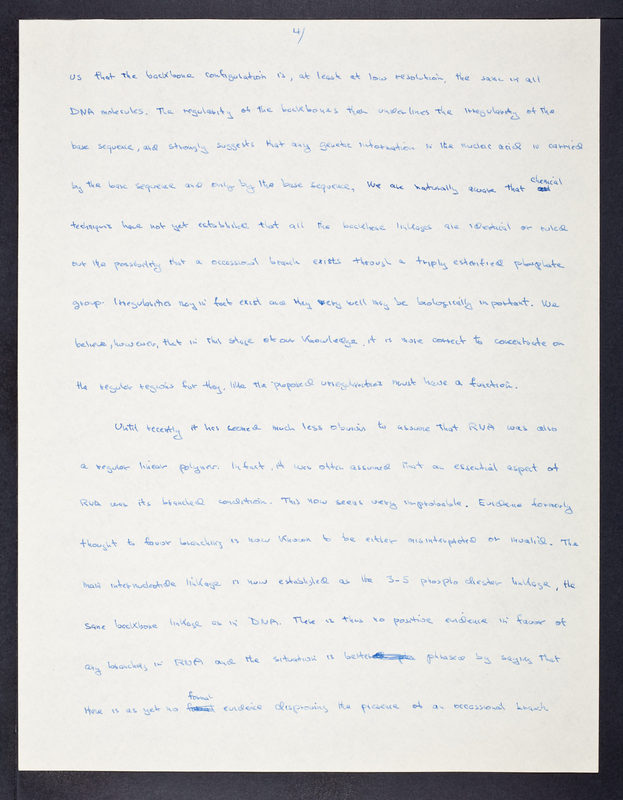 4/
us that the backbone configuration is, at least at low resolution, the same in all
DNA molecules. The regularity of the backbones then underlines the irregularity of the
base sequence, and strongly suggests that any genetic information in the nucleic acid is carried
by the base sequence and only by the base sequence. We are naturally aware that chemical
techniques have not yet established that all the backbone linkages are identical or ruled
out the possibility that a occassional branch exists through a triply esterified phosphate
group. Irregularities may in fact exist and they very well may be biologically important. We
believe, however, that in this stage of our knowledge, it is more correct to concentrate on
the regular regions for they, like the proposed irregularities must have a function.
Until recently it has seemed much less obvious to assume that RNA was also
a regular linear polymer. In fact, it was often assumed that an essential aspect of
RNA was its branched condition. This now seems very improbable. Evidence formerly
thought to favor branching is now known to be either misinterpreted or invalid. The
main internucleotide linkage is now established as the 3-5 phospho diester linkage, the
same backbone linkage as in DNA. There is thus no positive evidence in favor of
any branching in RNA and the situation is better phrased by saying that
there is as yet no formal evidence disproving the presence of an occassional branch